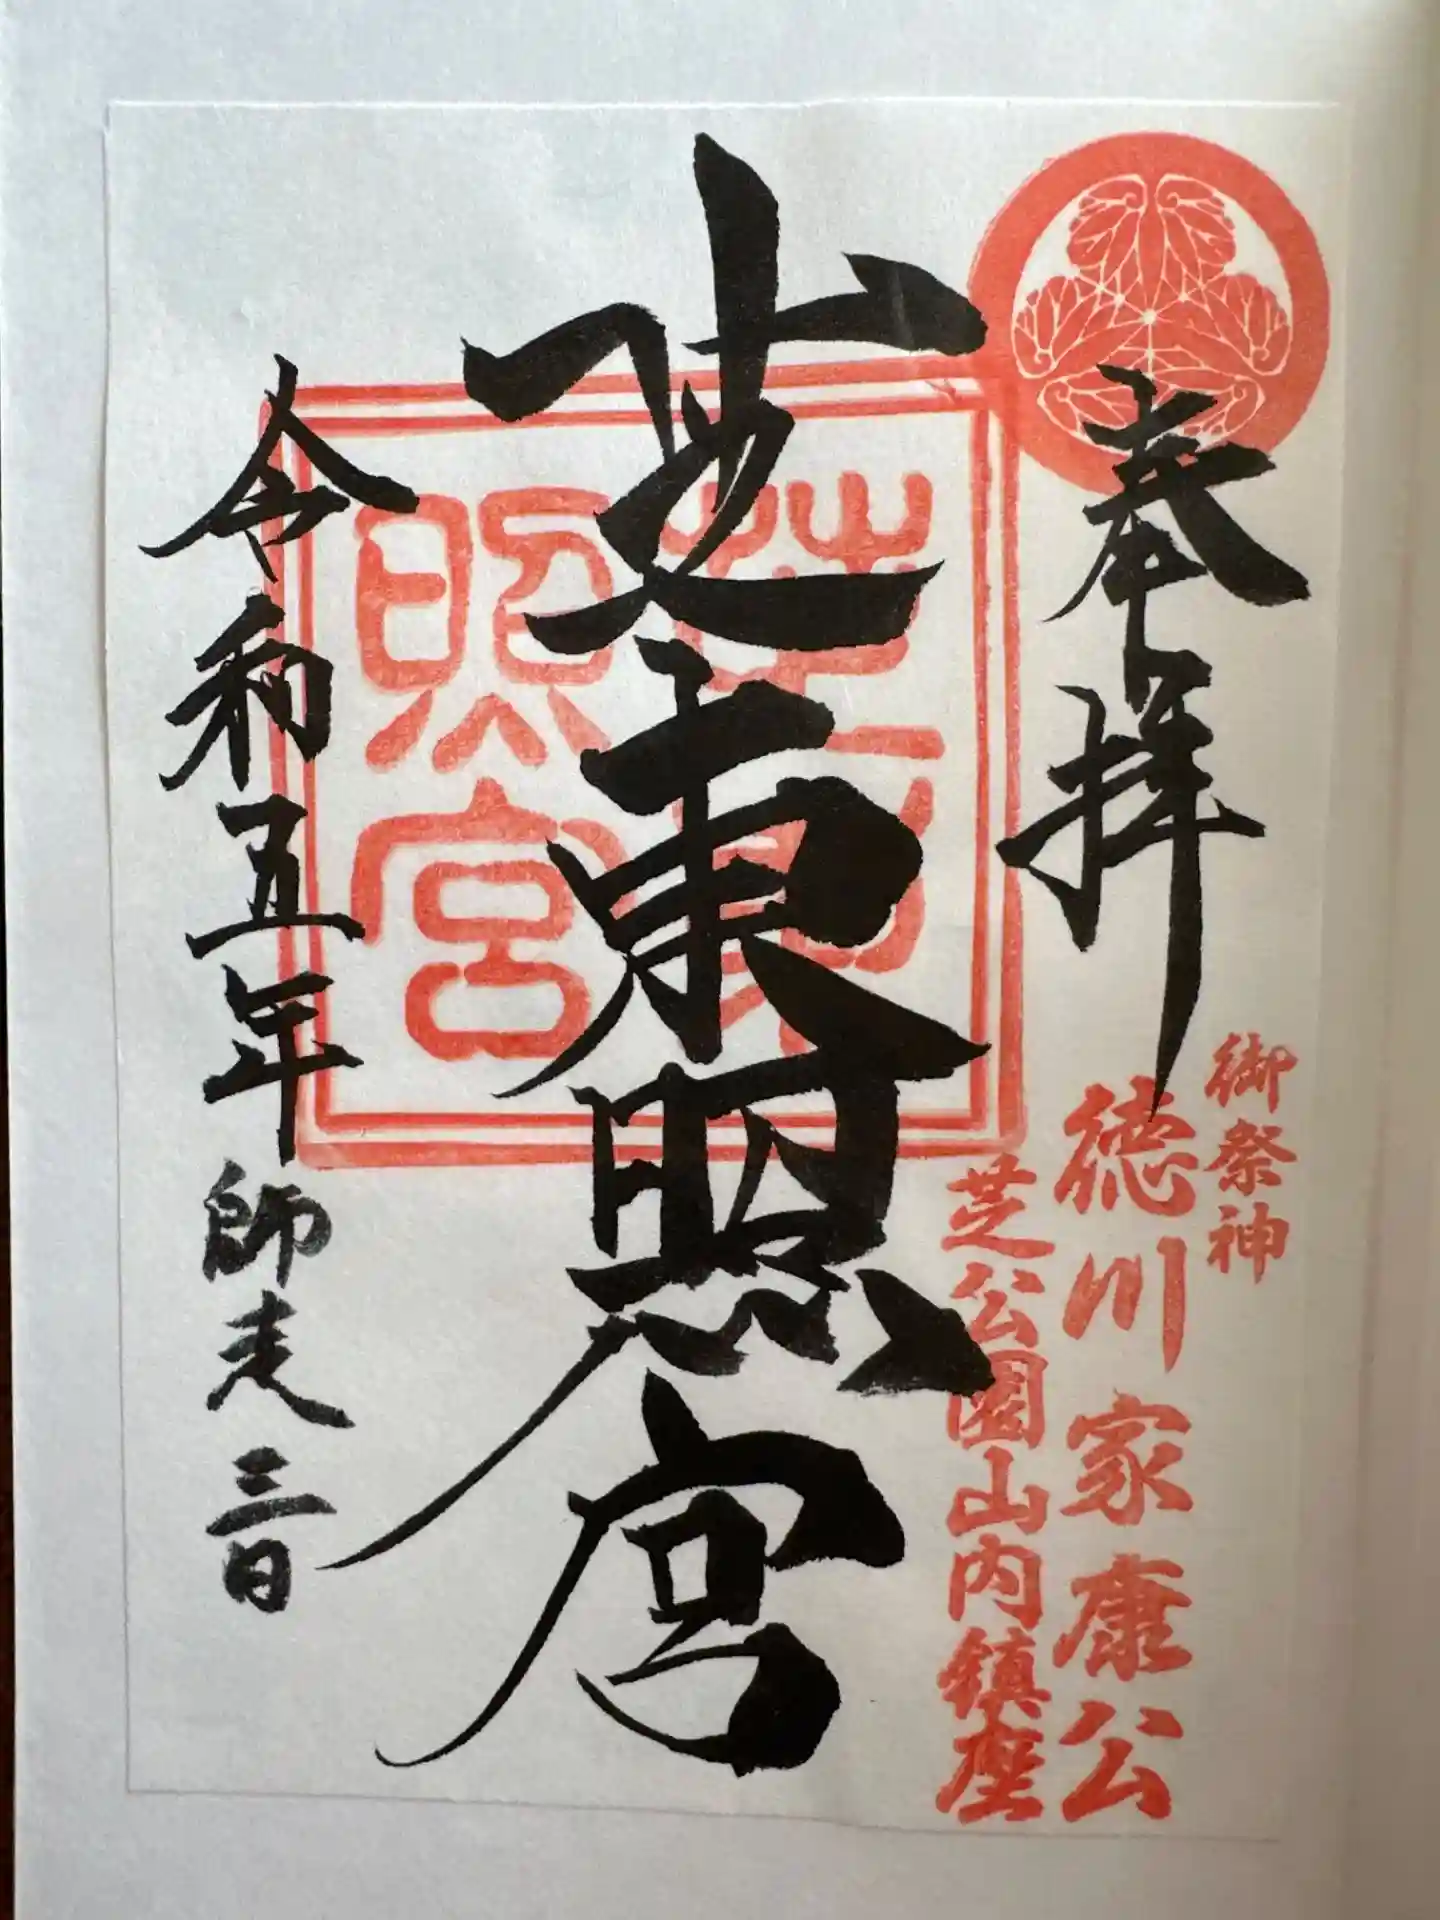 奉拝
御祭神
徳川家康公
芝公園山内鎮座
芝東照宮
芝東
照宮
令和五年師走三日